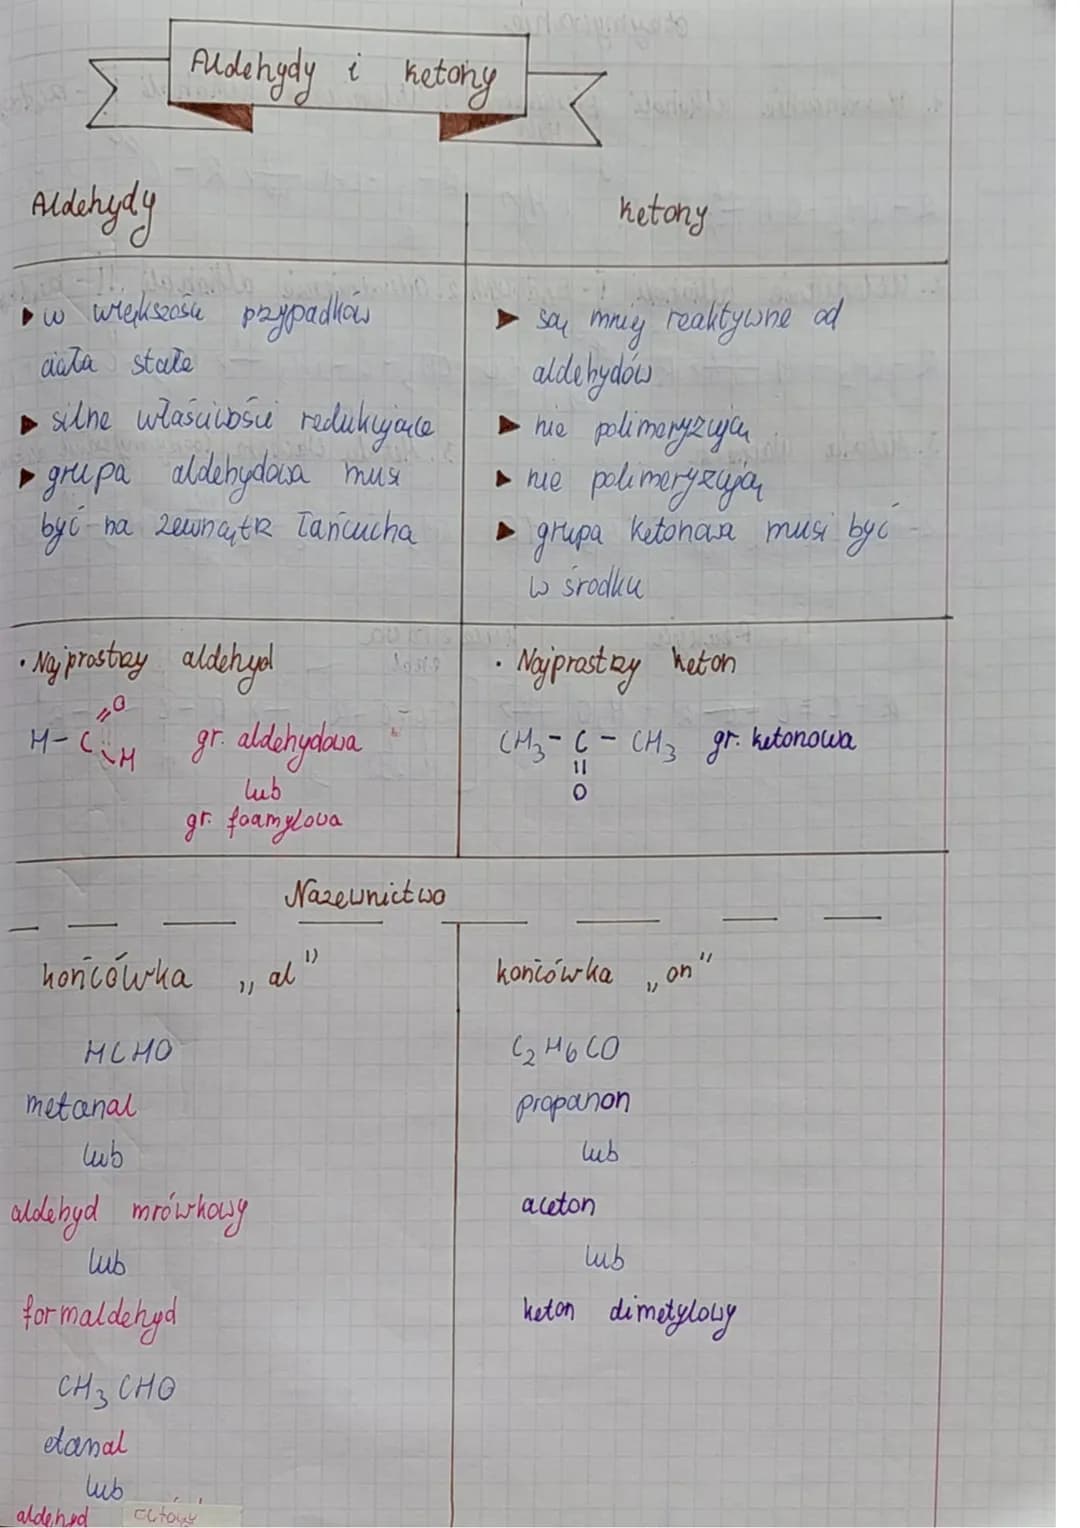 Aldehydy i ketony
Aldehydy
ketony
w większości przypadków
ciała stałe
silne właściwości redukujące
grupa aldehydowa musi
być na zewnątrz łańcucha
są mniej reaktywne od
aldehydów
nie polimeryzują
nie polimeryzują
grupa ketonowa musi być
w środku
• Najprostszy aldehyd
O
H-C
H
gr. aldehydowa
lub
gr. foamylowa
• Najprostszy keton
CH3 - C - CH3 gr. ketonowa
O
Nazewnictwo
końcówka „al"
HCHO
metanal
lub
aldehyd mrówkowy
lub
formaldehyd
CH3CHO
etanal
lub
aldehyd octowy
końcówka „on"
C2H6CO
propanon
lub
aceton
lub
keton dimetylowy